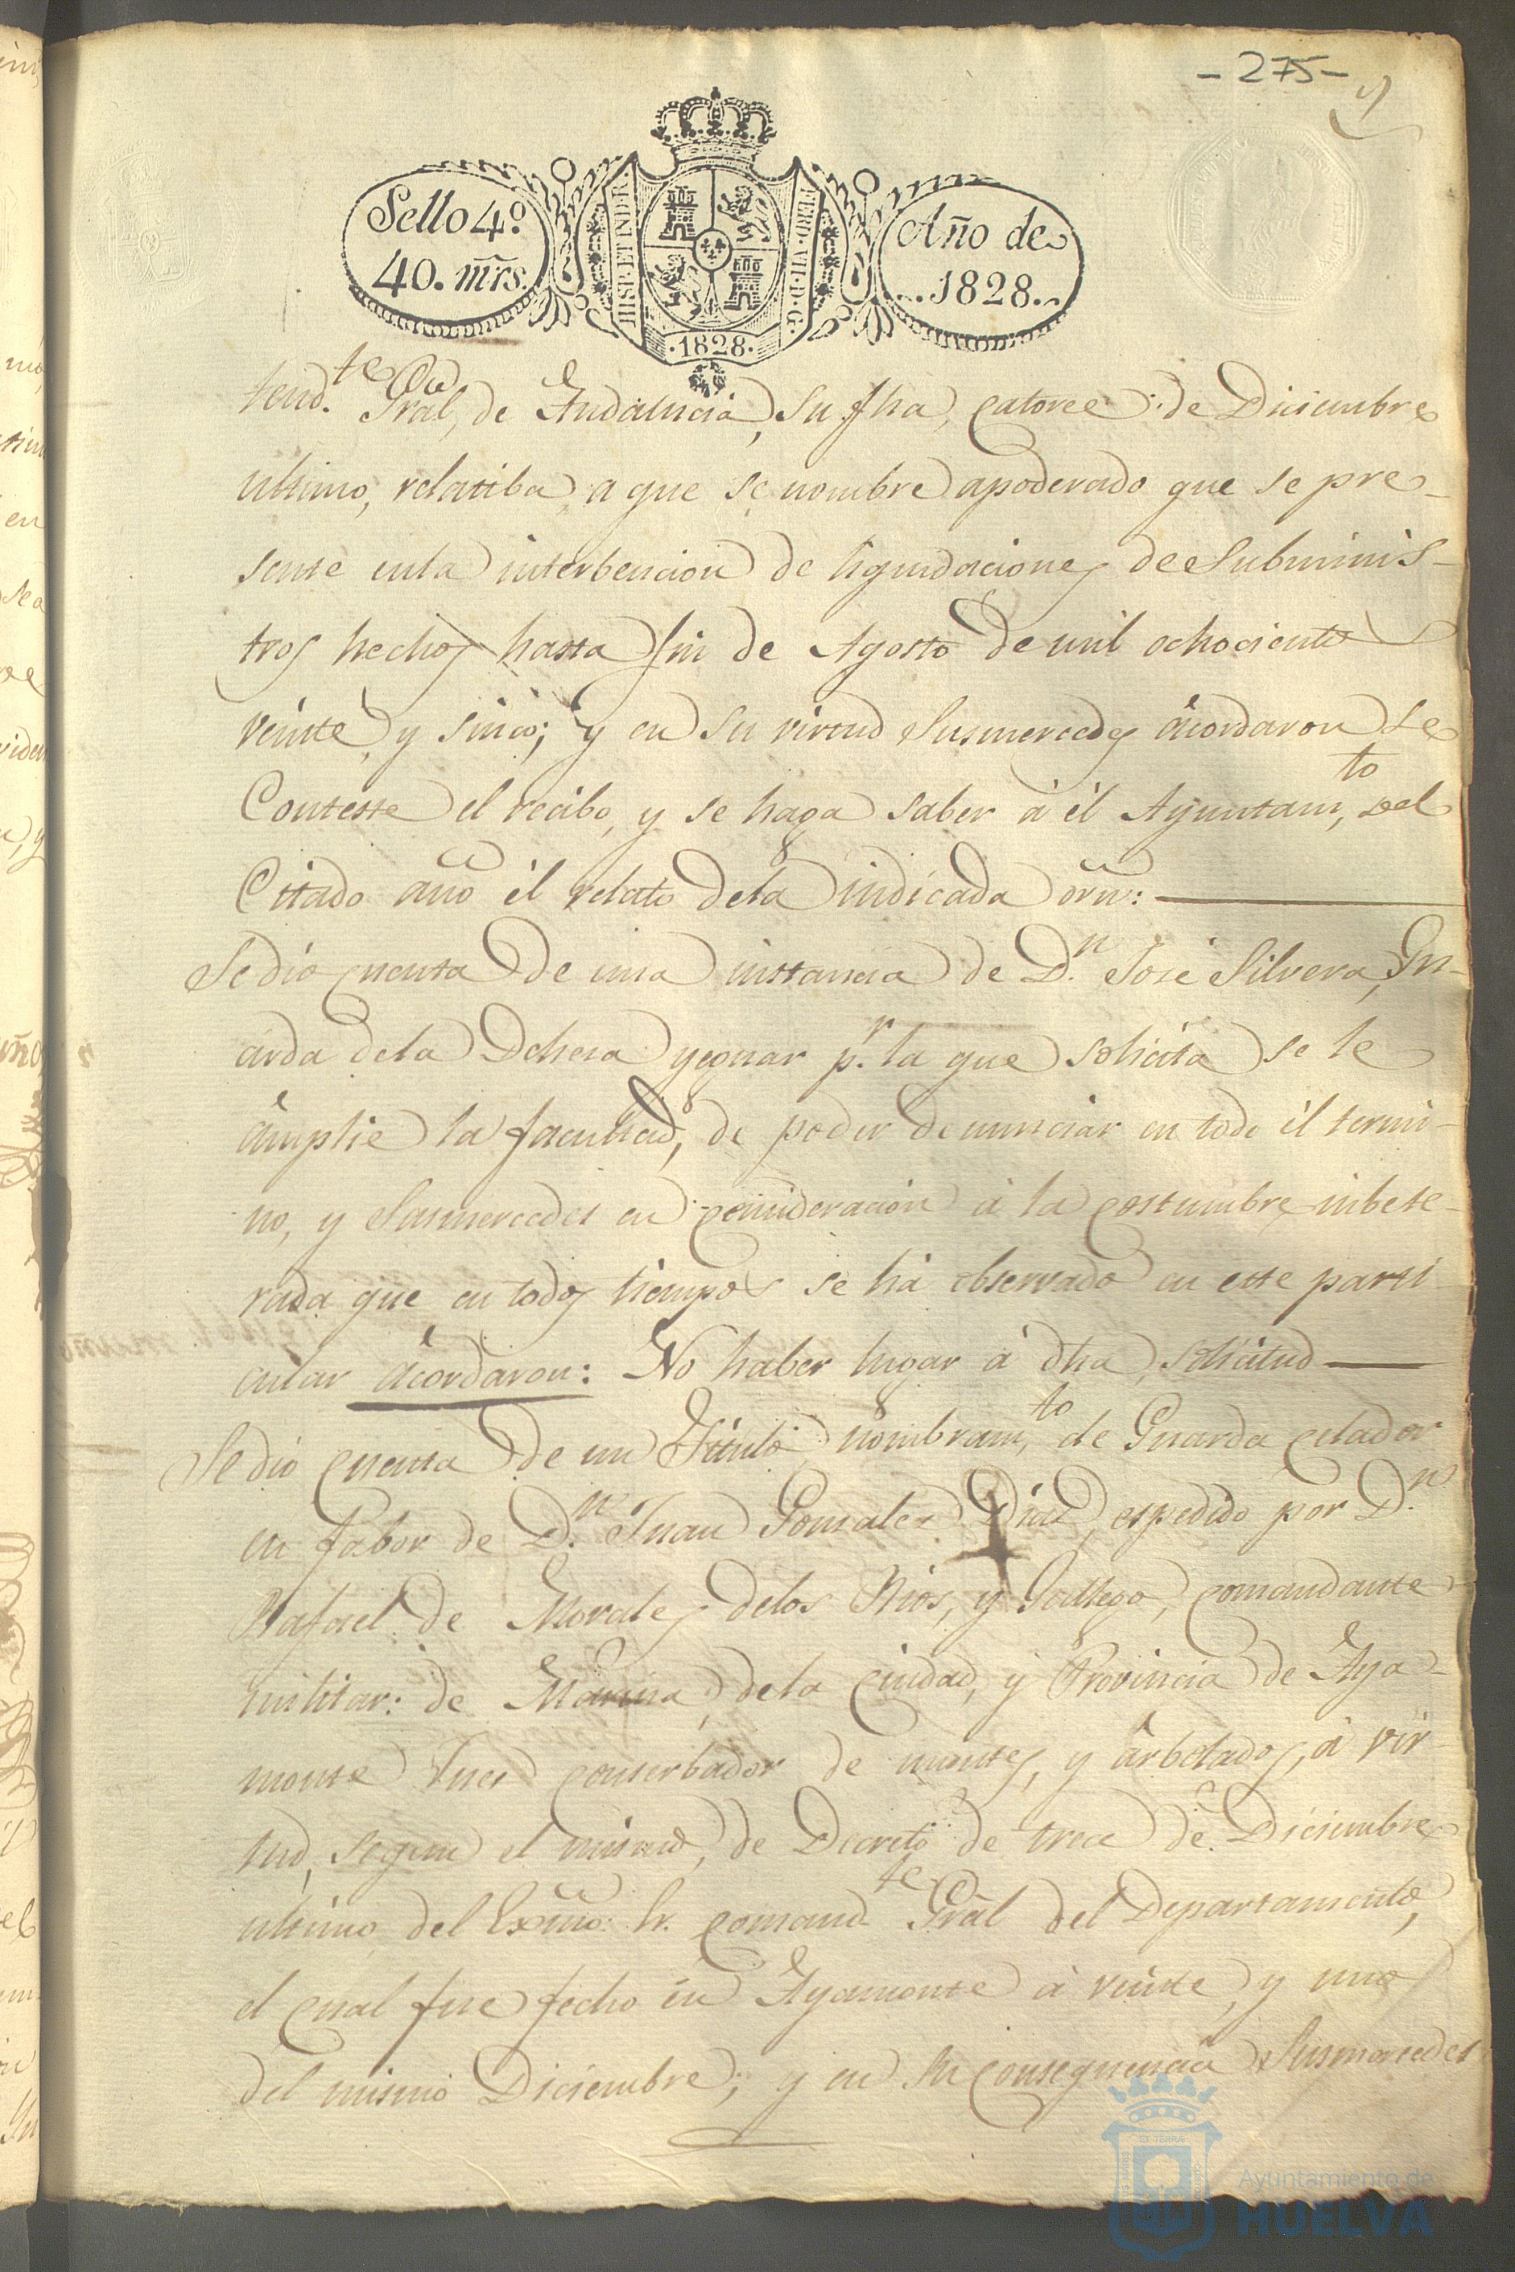 - 275 -
Sello 4.º
40. mrs.
HISP. ET IND. R.
FERD. VII. D. G.
· 1828 ·
Año de
1828.
tend.te Gral, de Andalucia, su fha, catorce de Diciembre
ultimo, relatiba, a que se nombre apoderado que se pre-
sente enla interbencion de liquidaciones de Subminis-
tros hechos hasta fin de Agosto de mil ochocientos
veinte, y sinco; y en su virtud Susmercedes ácordaron se
Conteste el recibo, y se haga saber á él Ayuntam,to del
Citado año él relato dela índicada orn:
Se dio cuenta de una instancia de D.n José Silvera, Gu-
arda dela Dehesa yeguar p.r la que solicita se le
ámplie la facultad, de poder denunciar en todo él termi-
no, y Susmercedes en consideracion á la costumbre inbete-
rada que en todos tiempos se há observado en este parti-
cular ácordaron: No haber lugar á dha solicitud
Se dio cuenta de un Título nombram,to de Guarda celador
en fabor de D.n Juan Gonzalez Diaz, espedido por D.n
Rafael de Morales delos Rios, y Gallego, comandante
militar: de Marina, dela Ciudad, y Provincia de Aya-
monte Juez conserbador de montes, y árbolados, á vir-
tud, segun el mismo, de Decreto de trece de Diciembre
ultimo del Exmo. Sr. Comand.te Gral del Departamento,
el cual fue fecho én Ayamonte á veinte, y uno
del mismo Diciembre; y en su consequencia Susmercedes
Ayuntamiento de
HUELVA